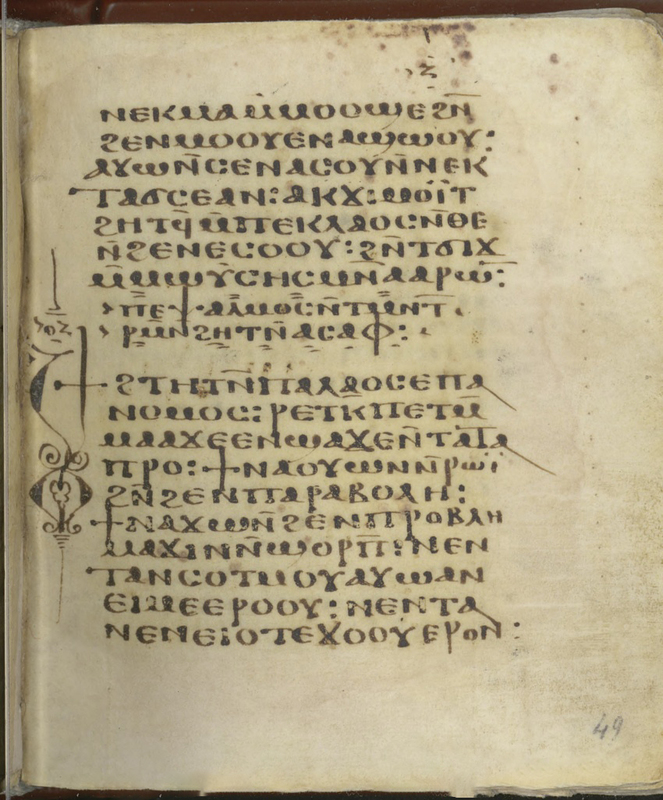 ⲛⲉⲕⲙⲁⲙ̄ⲙⲟⲟϣⲉϩⲛ̄
ϩⲉⲛⲙⲟⲟⲩⲉⲛⲁϣⲱⲟⲩ:
ⲁⲩⲱⲛ̄ⲥⲉⲛⲁⲥⲟⲩⲛ̄ⲛⲉⲕ
ⲧⲁϭⲥⲉⲁⲛ:ⲁⲕϫⲓⲙⲟⲉⲓⲧ
ϩⲏⲧϥ̄ⲙ̄ⲡⲉⲕⲗⲁⲟⲥⲛ̄ⲑⲉ
ⲛ̄ϩⲉⲛⲉⲥⲟⲟⲩ:ϩⲛ̄ⲧϭⲓϫ
ⲙ̄ⲙⲱⲩ̈ⲥⲏⲥⲙⲛ̄ⲁⲁⲣⲱⲛ:
ⲡⲉⲯⲁⲗⲙⲟⲥⲛ̄ⲧⲙⲛ̄ⲧ
ⲣⲙⲛ̄ϩⲏⲧⲛ̄ⲁⲥⲁⲫ:
ⲟⲍ
ϯϩⲧⲏⲧⲛ̄ⲡⲁⲗⲁⲟⲥⲉⲡⲁ
ⲛⲟⲙⲟⲥ:ⲣⲉⲕⲧⲡⲉⲧⲙ̄
ⲙⲁⲁϫⲉⲉⲛϣⲁϫⲉⲛ̄ⲧⲁⲧⲁ
ⲡⲣⲟ:ϯⲛⲁⲟⲩⲱⲛⲛ̄ⲣⲱⲓ̈
ϩⲛ̄ϩⲉⲛⲡⲁⲣⲁⲃⲟⲗⲏ:
ϯⲛⲁϫⲱⲛ̄ϩⲉⲛⲡⲣⲟⲃⲗⲏ
ⲙⲁϫⲓⲛⲛ̄ϣⲟⲣⲡ̄:ⲛⲉⲛ
ⲧⲁⲛⲥⲟⲧⲙⲟⲩⲁⲩⲱⲁⲛ
ⲉⲓⲙⲉⲉⲣⲟⲟⲩ:ⲛⲉⲛⲧⲁ
ⲛⲉⲛⲉⲓⲟⲧⲉϫⲟⲟⲩⲉⲣⲟⲛ:
49